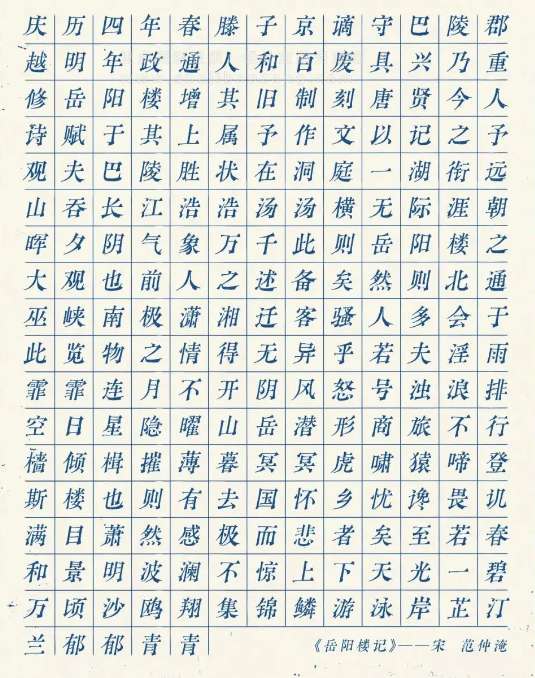 庆历四年春滕子京谪守巴陵郡
越明年政通人和百废具兴乃重
修岳阳楼增其旧制刻唐贤今人
诗赋于其上属予作文以记之予
观夫巴陵胜状在洞庭一湖衔远
山吞长江浩浩汤汤横无际涯朝
晖夕阴气象万千此则岳阳楼之
大观也前人之述备矣然则北通
巫峡南极潇湘迁客骚人多会于
此览物之情得无异乎若夫淫雨
霏霏连月不开阴风怒号浊浪排
空日星隐曜山岳潜形商旅不行
樯倾楫摧薄暮冥冥虎啸猿啼登
斯楼也则有去国怀乡忧谗畏讥
满目萧然感极而悲者矣至若春
和景明波澜不惊上下天光一碧
万顷沙鸥翔集锦鳞游泳岸芷汀
兰郁郁青青
《岳阳楼记》——宋 范仲淹